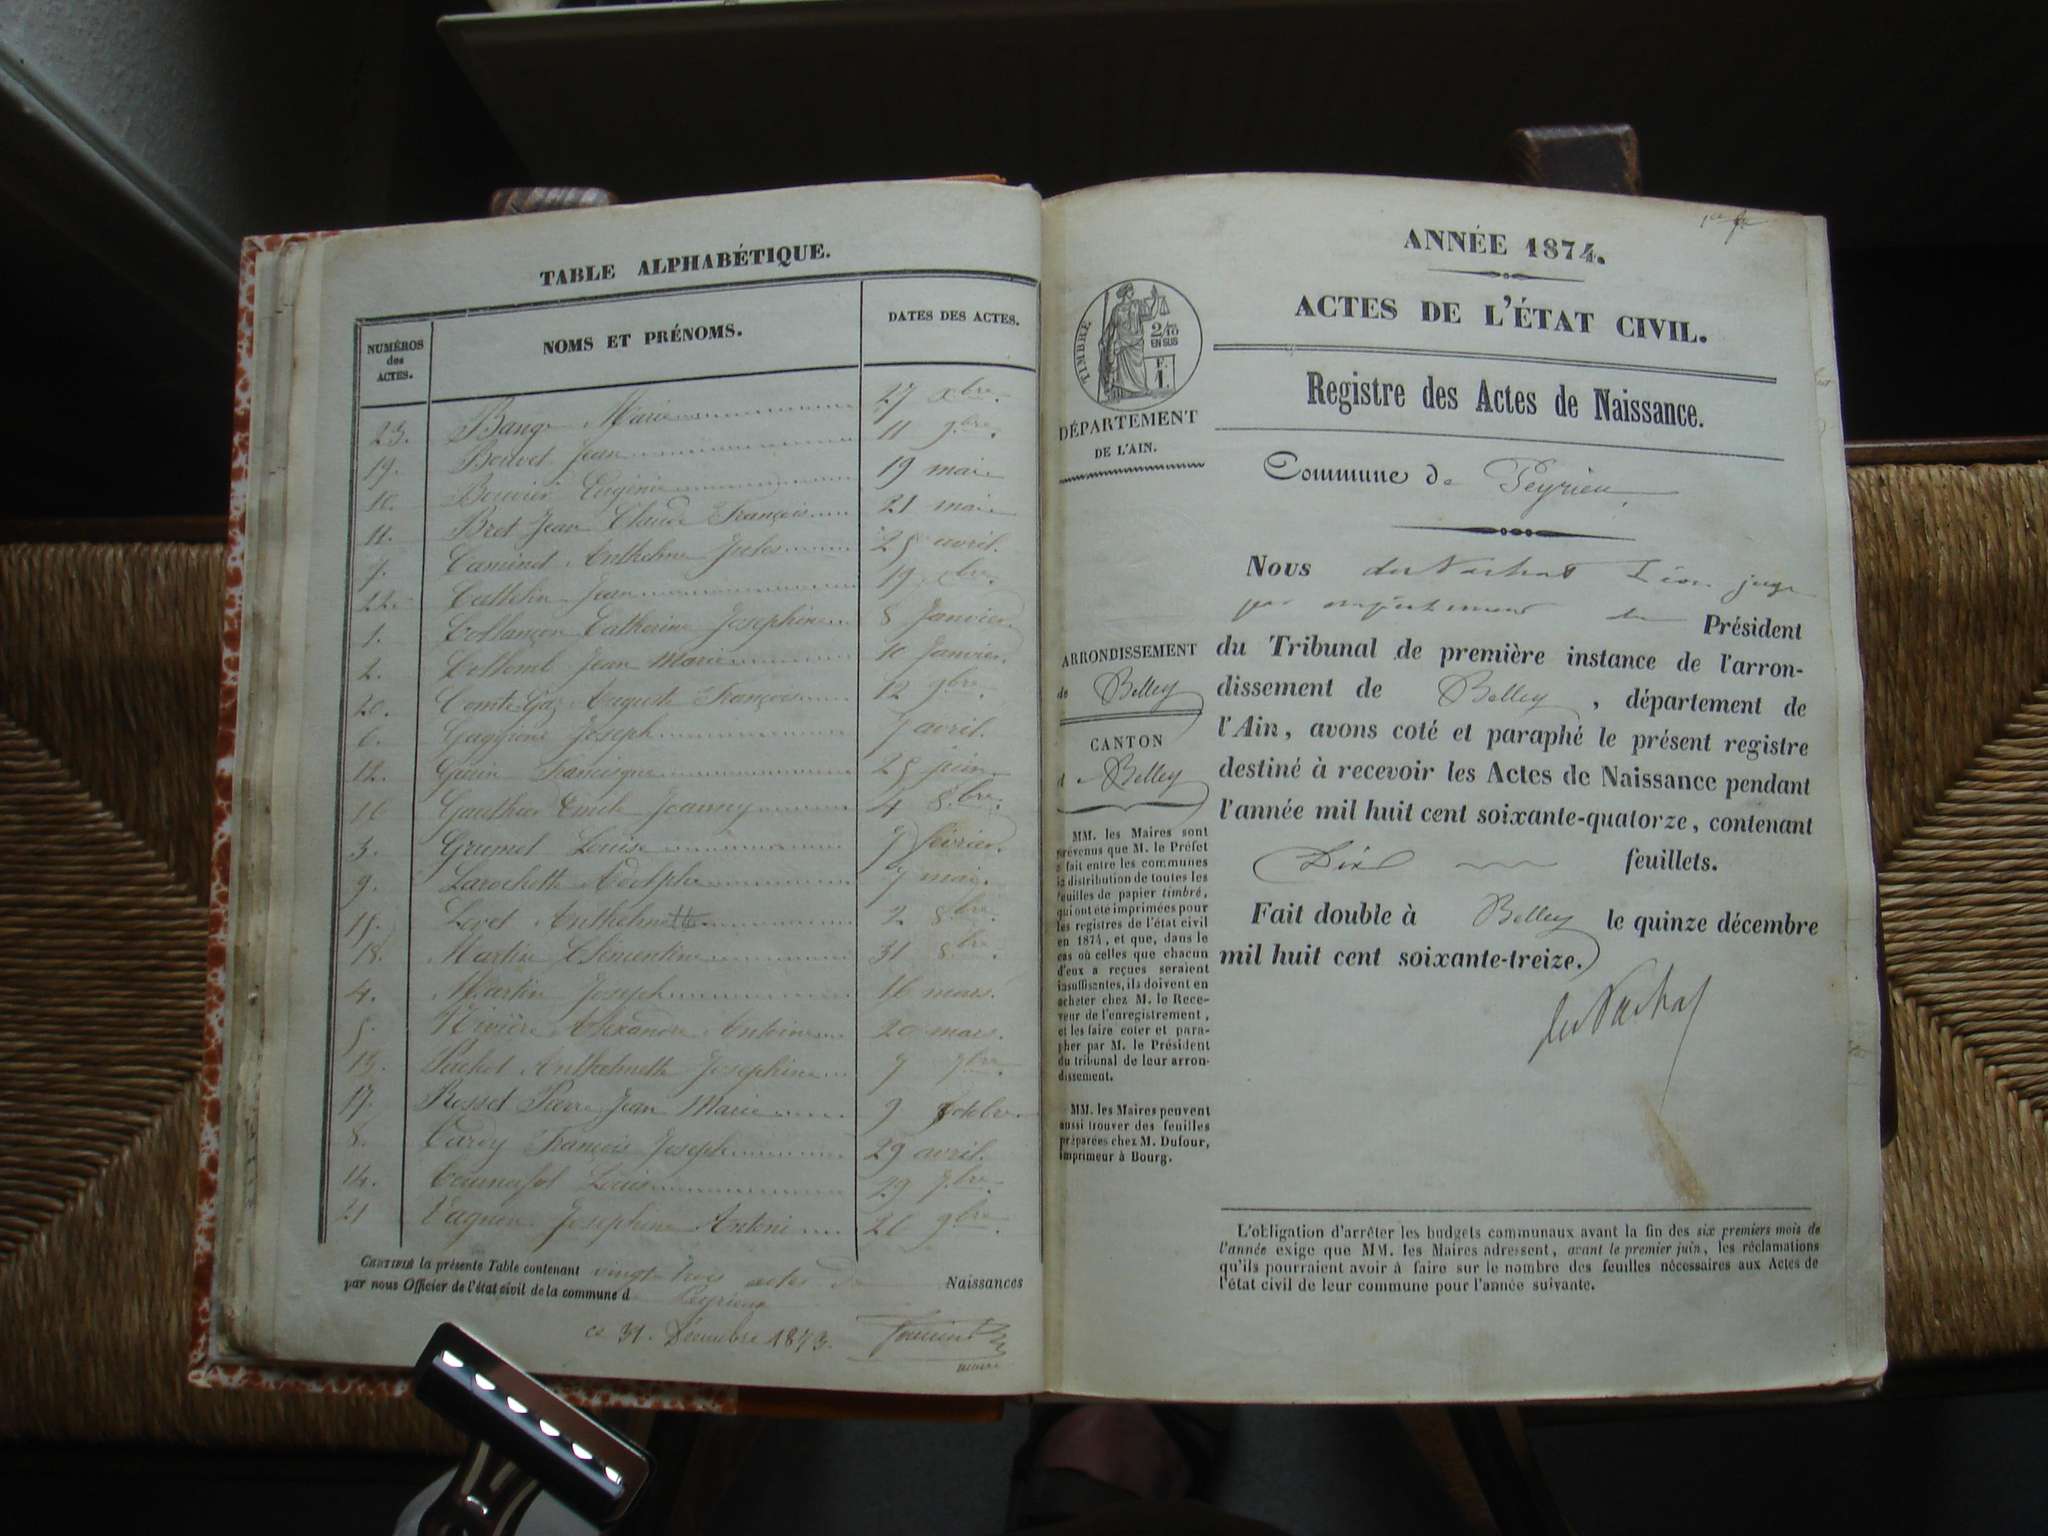 TABLE ALPHABÉTIQUE.
NUMÉROS des ACTES.
NOMS ET PRÉNOMS.
DATES DES ACTES.
23. Marie 27 xbre.
19. Bouvet Jean 11 9bre.
10. Bouvier Eugénie 19 mai
11. Bret Jean Claude François 21 mai
7. Caminet Anthelme Jules 25 avril.
22. Cattelin Jean 19 xbre.
1. Catherine Joséphine 8 Janvier.
2. Jean Marie 10 Janvier.
20. Auguste François 12 9bre.
6. Joseph 7 avril.
12. Francisque 25 juin
16 Gauthier Emile Joanny 4 8.bre.
3. Grumet Louise 7 février.
9. Larochette Adolphe 7 mai.
15. Levet 2 8bre.
18. Martin Clémentine 31 8.bre.
4. Martin Joseph 16 mars.
5. Rivière Alexandre Antoine 20 mars.
13. Anthelmette Joséphine 7 7bre.
17. Rosset Pierre Jean Marie 9 8tobre
8. François Joseph 29 avril.
14. Louis 29 7.bre.
21 Joséphine 9bre.
CERTIFIÉ la présente Table contenant vingt trois actes de Naissances
par nous Officier de l'état civil de la commune d Peyrieu
ce 31. Décembre 1873.
maire
ANNÉE 1874.
ACTES DE L'ÉTAT CIVIL.
TIMBRE
2/10
EN SUS
F.
1.
DÉPARTEMENT
DE L'AIN.
Registre des Actes de Naissance.
Commune de Peyrieu
Nous juge
par Président
du Tribunal de première instance de l'arron-
dissement de Belley, département de
l'Ain, avons coté et paraphé le présent registre
destiné à recevoir les Actes de Naissance pendant
l'année mil huit cent soixante-quatorze, contenant
Dix feuillets.
Fait double à Belley le quinze décembre
mil huit cent soixante-treize.
ARRONDISSEMENT
de Belley
CANTON
d Belley
MM. les Maires sont
prévenus que M. le Préfet
a fait entre les communes
la distribution de toutes les
feuilles de papier timbré,
qui ont été imprimées pour
les registres de l'état civil
en 1874, et que, dans le
cas où celles que chacun
d'eux a reçues seraient
insuffisantes, ils doivent en
acheter chez M. le Rece-
veur de l'enregistrement,
et les faire coter et para-
pher par M. le Président
du tribunal de leur arron-
dissement.
MM. les Maires peuvent
aussi trouver des feuilles
préparées chez M. Dufour,
imprimeur à Bourg.
L'obligation d'arrêter les budgets communaux avant la fin des six premiers mois de
l'année exige que MM. les Maires adressent, avant le premier juin, les réclamations
qu'ils pourraient avoir à faire sur le nombre des feuilles nécessaires aux Actes de
l'état civil de leur commune pour l'année suivante.